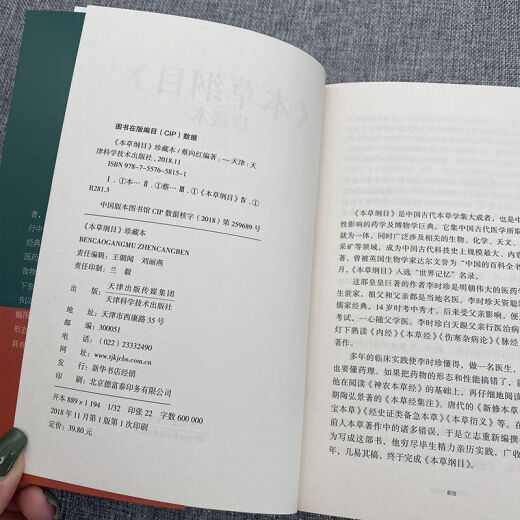 图书在版编目（CIP）数据
《本草纲目》珍藏本/蔡向红编著.—天津:天
津科学技术出版社，2018.11
ISBN 978-7-5576-5815-1
Ⅰ.①本… Ⅱ.①蔡… Ⅲ.①《本草纲目》Ⅳ.①
R281.3
中国版本图书馆 CIP 数据核字（2018）第 259689 号
《本草纲目》珍藏本
BENCAOGANGMU ZHENCANGBEN
责任编辑：王朝闻 刘丽燕
责任印制：兰 毅
出 版：天津出版传媒集团
天津科学技术出版社
地 址：天津市西康路 35 号
邮 编：300051
电 话：(022) 23332490
网 址：www.tjkjcbs.com.cn
发 行：新华书店经销
印 刷：北京德富泰印务有限公司
开本 889 x 1 194 1/32 印张 22 字数 600 000
2018 年 11 月第 1 版第 1 次印刷
定价：39.80 元
《本草纲目》是中国古代本草学集大成者，也是
性影响的药学及博物学巨典。它集中国古代医学所取
就为一体，同时广泛涉及相关的生物、化学、天文、
采矿等领域，成为中国古代科技史上规模最大、内容
著，曾被英国生物学家达尔文誉为“中国的百科全书
月，《本草纲目》入选“世界记忆”名录。
这部皇皇巨著的作者李时珍是明朝伟大的医药
生世家，祖父和父亲都是当地名医。李时珍天资聪
儒家经典，14 岁时考中秀才。后来受父亲影响，便
考试，一心随父学医。李时珍白天跟父亲行医治病
灯下熟读《内经》《本草经》《伤寒杂病论》《脉经
著作。
多年的临床实践使李时珍懂得，做一名医生，
也要懂药理。如果把药物的形态和性能搞错了，
他在阅读《神农本草经》的基础上，再仔细地阅读
期陶弘景著的《本草经集注》、唐代的《新修本草
宝本草》《经史证类备急本草》《本草衍义》等。在
前人本草著作中的诸多错误，于是立志重新编撰
为写成这部书，他穷尽毕生精力亲历实践，广收
年，几易其稿，终于完成《本草纲目》。
前言